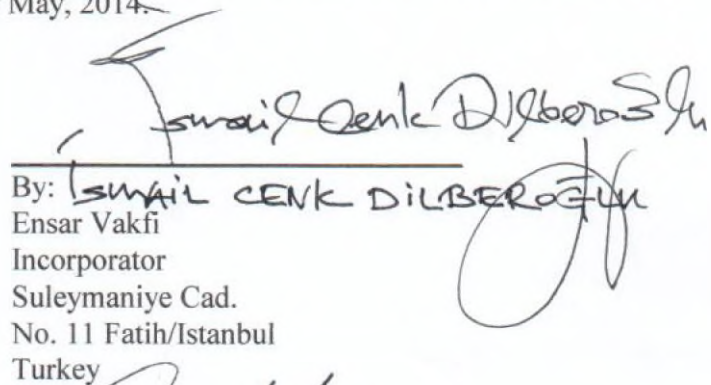 May, 2014.
Ismail Cenk Dilberoğlu
By: İSMAİL CENK DİLBEROĞLU
Ensar Vakfi
Incorporator
Suleymaniye Cad.
No. 11 Fatih/Istanbul
Turkey